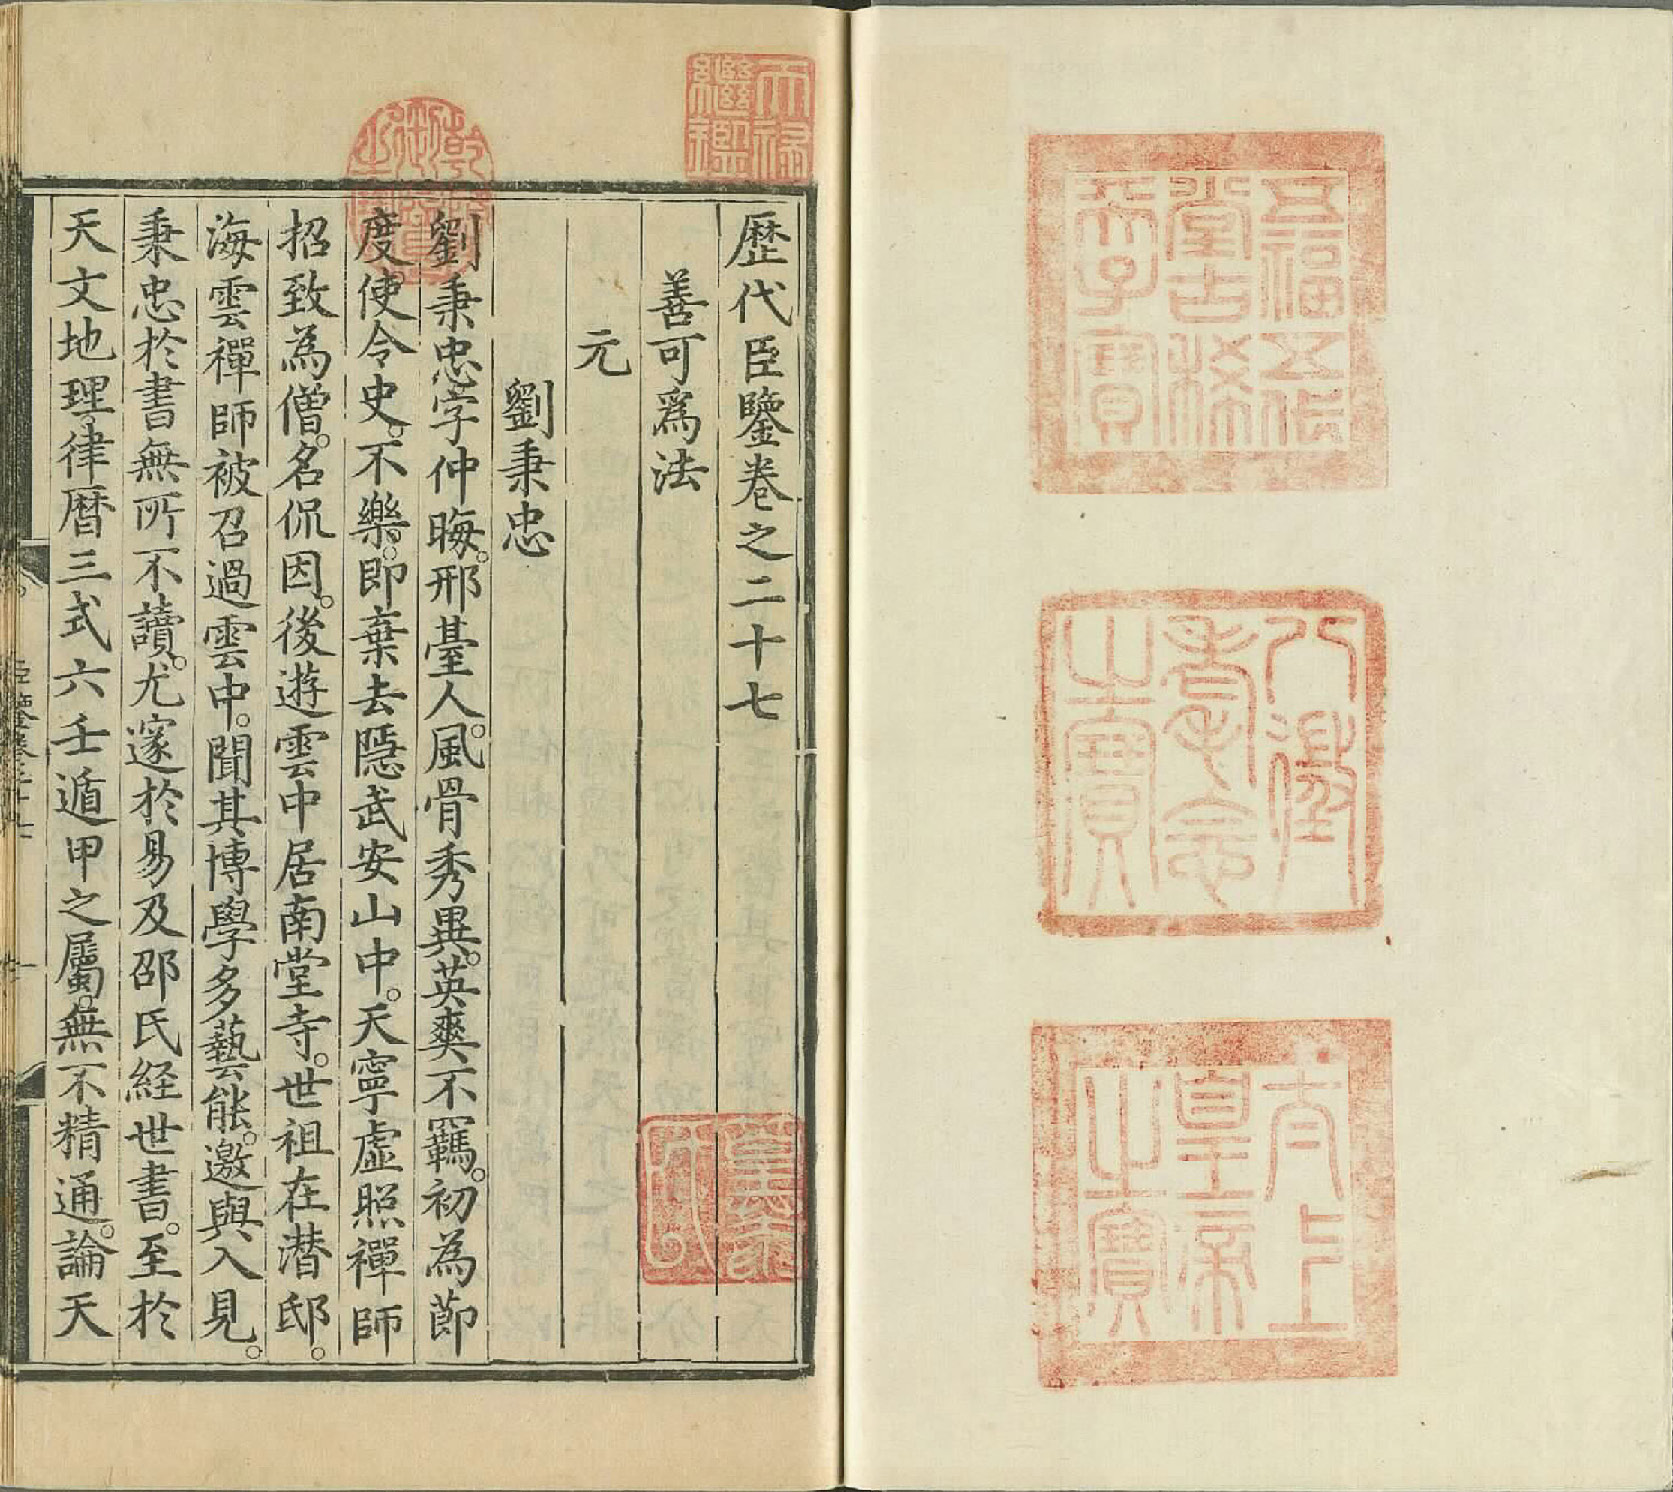 五福五代
堂古稀
天子寶
八徵
耄念
之寶
太上
皇帝
之寶
天祿
繼鑑
乾隆
御覽
之寶
歷代臣鑒卷之二十七
善可爲法
元
劉秉忠
劉秉忠字仲晦。邢臺人。風骨秀異。英爽不羈。初為節
度使令史。不樂。即棄去隱武安山中。天寧虛照禪師
招致為僧。名侃因。後遊雲中居南堂寺。世祖在潜邸。
海雲禪師被召過雲中。聞其博學多藝能。邀與入見。
秉忠於書無所不讀。尤邃於易及邵氏経世書。至於
天文地理律曆三式六壬遁甲之屬。無不精通。論天
臣鑒卷二十七